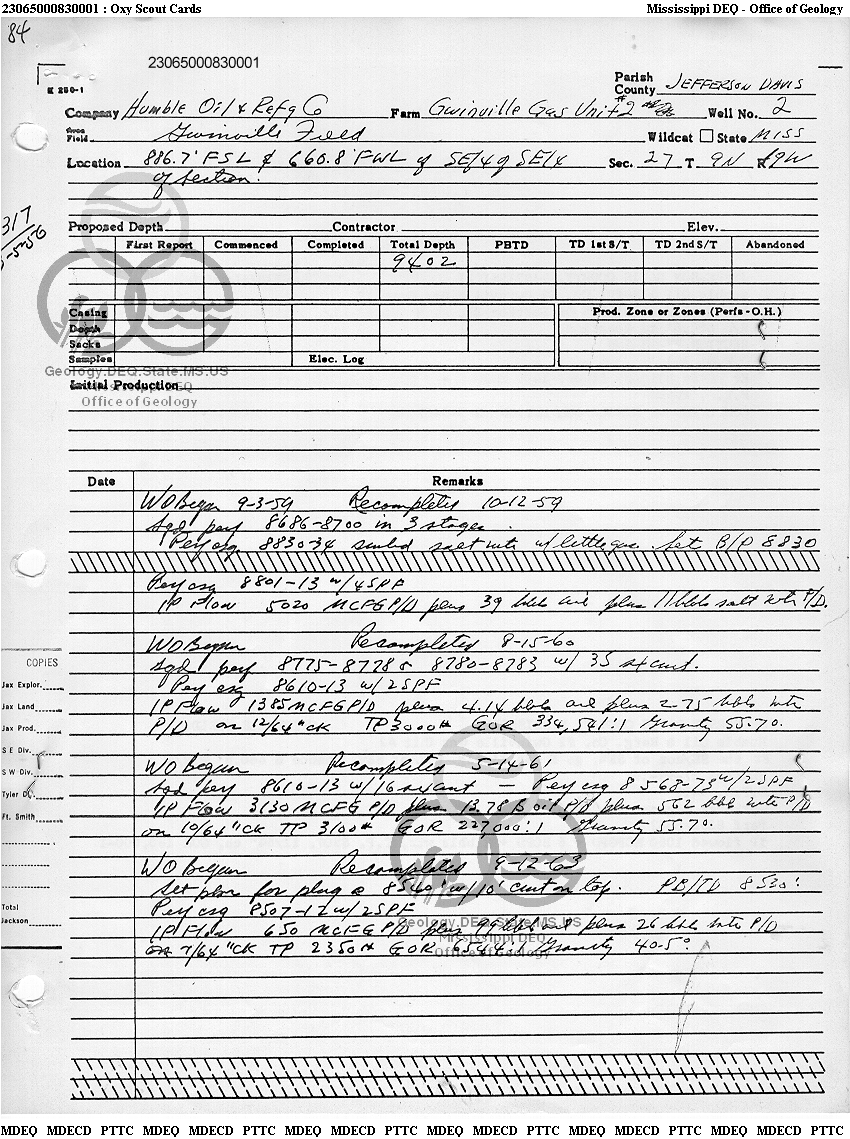 23065000830001 : Oxy Scout Cards Mississippi DEQ - Office of Geology
84
23065000830001
K 250-1
Parish
County JEFFERSON DAVIS
Company Humble Oil & Refg Co Farm Gwinville Gas Unit #2 Well No. 2
Area
Field Gwinville Field Wildcat State MISS
Location 886.7' FSL & 660.8' FWL of SE/4 of SE/4 Sec. 27 T. 9N R 19W
of Section.
317
Proposed Depth Contractor Elev.
First Report Commenced Completed Total Depth PBTD TD 1st S/T TD 2nd S/T Abandoned
9402
Casing Prod. Zone or Zones (Perfs - O.H.)
Depth
Sacks
Samples Elec. Log
Geology.DEQ.State.MS.US
Initial Production
Mississippi DEQ
Office of Geology
Date Remarks
WO Began 9-3-59 Recompleted 10-12-59
Sqd perf 8686-8700 in 3 stages.
Perf csg 8830-34 swbd salt wtr w/ little gas. Set B/P 8830
Perf csg 8801-13 w/4SPF
IP Flow 5020 MCFGP/D plus 39 bbls oil plus 11 bbls salt wtr P/D.
WO Began Recompleted 8-15-60
Sqd perf 8775-8778 & 8780-8783 w/ 35 sx cmt.
Perf csg 8610-13 w/2SPF
IP Flow 1385 MCFGP/D plus 4.14 bbls oil plus 2.75 bbls wtr
P/D on 12/64"CK TP 3000# GOR 334,541:1 Gravity 55.70.
WO Began Recompleted 5-14-61
Sqd perf 8610-13 w/16 sx cmt - Perf csg 8568-73 w/2SPF
IP Flow 3130 MCFG P/D plus 13.78 B oil P/D plus 562 bbl wtr P/D
on 10/64"CK TP 3100# GOR 227,000:1 Gravity 55.70.
WO Began Recompleted 9-12-63
Set plug @ 8540' w/10' cmt on top. PB/TD 8530'.
Perf csg 8507-12 w/2SPF
IP Flow 650 MCFG P/D plus 99 bbls oil plus 26 bbls wtr P/D
on 7/64"CK TP 2350# GOR 6544:1 Gravity 40.5°
Geology.DEQ.State.MS.US
Mississippi DEQ
Office of Geology
COPIES
Jax Explor.
Jax Land
Jax Prod.
S E Div.
S W Div.
Tyler D.
Ft. Smith
Total
Jackson
MDEQ MDECD PTTC MDEQ MDECD PTTC MDEQ MDECD PTTC MDEQ MDECD PTTC MDEQ MDECD PTTC MDEQ MDECD PTTC